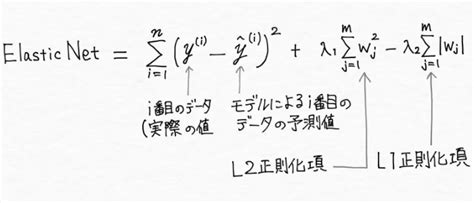 Elastic Net = \sum_{i=1}^{n} (y^{(i)} - \hat{y}^{(i)})^2 + λ_1 \sum_{j=1}^{m} w_j^2 - λ_2 \sum_{j=1}^{m} |w_j|
i番目のデータ
(実際の値
モデルによるi番目の
データの予測値
L2正則化項
L1正則化項